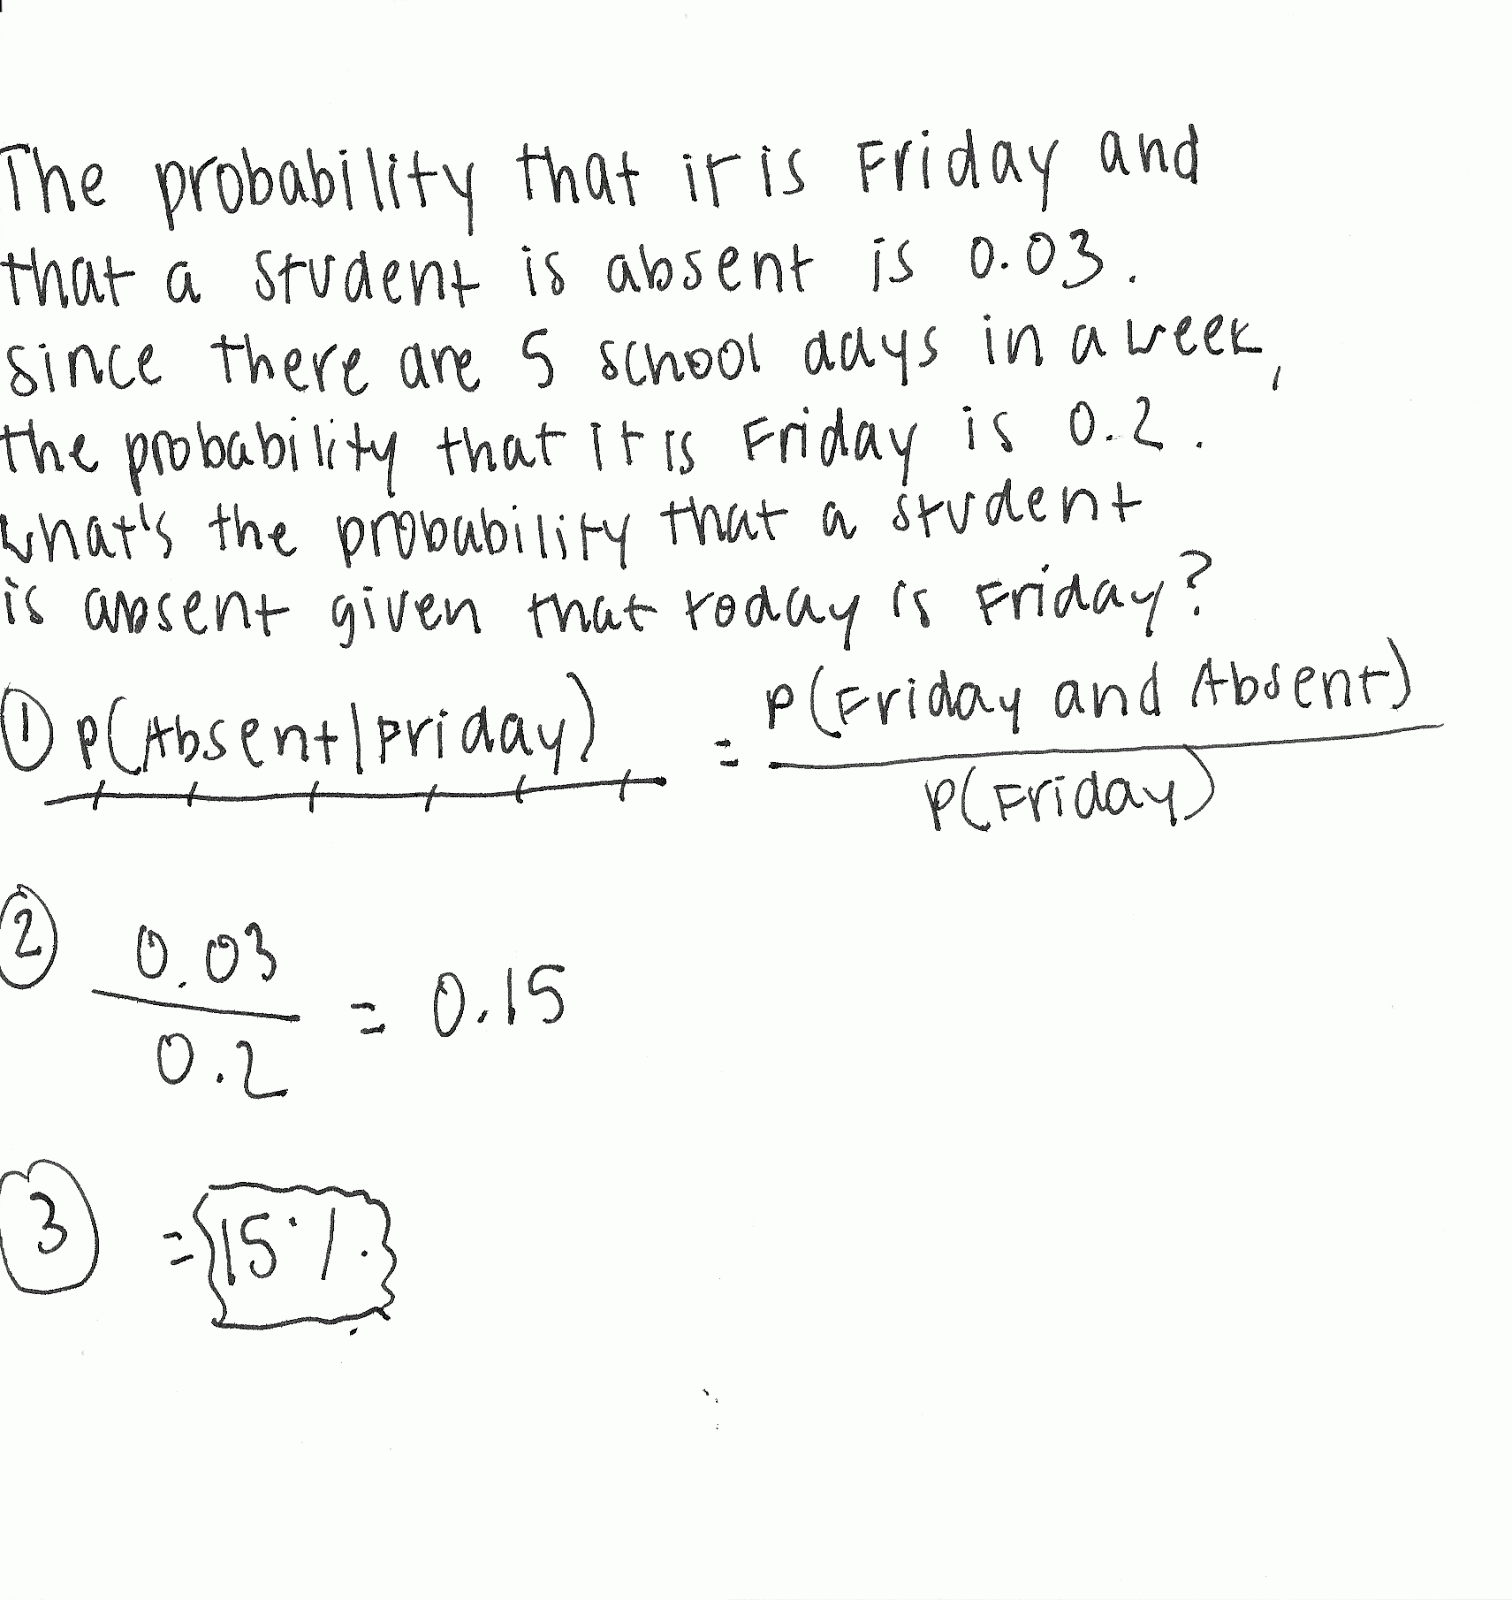 The probability that it is Friday and
that a student is absent is 0.03.
since there are 5 school days in a week,
the probability that it is Friday is 0.2.
what's the probability that a student
is absent given that today is Friday?
① P(Absent|Friday) = P(Friday and Absent)
P(Friday)
② 0.03
0.2
= 0.15
③ = 15%